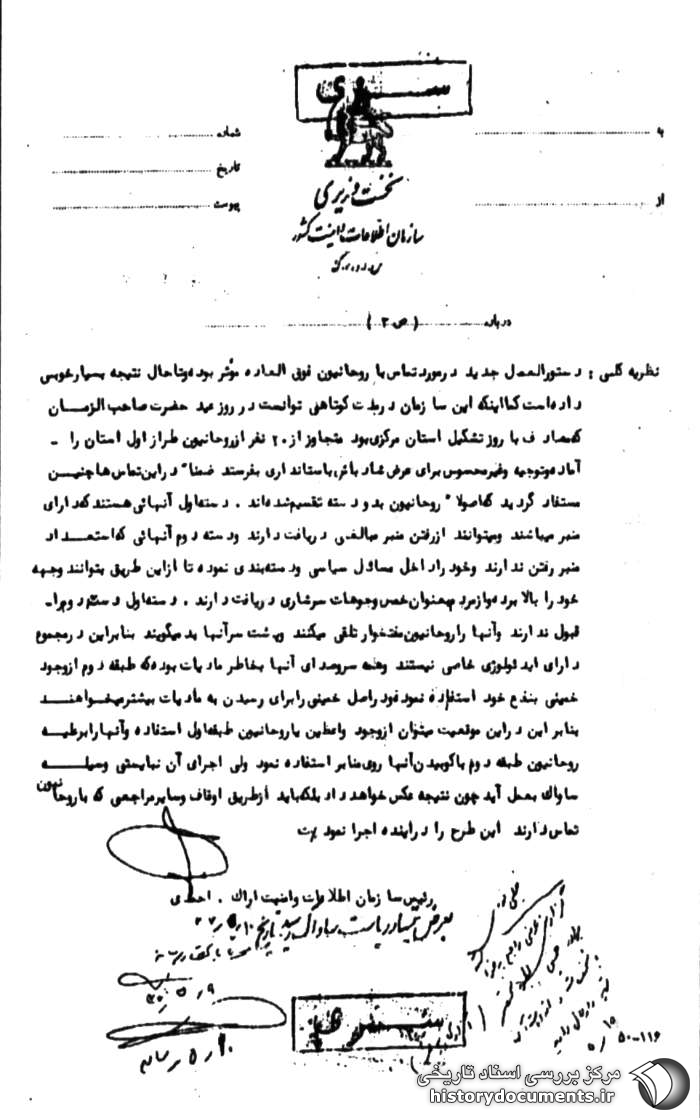 سری
به
شماره
از
تاریخ
پیوست
نخست وزیری
سازمان اطلاعات و امنیت کشور
درباره (ص ۲)
نظریه کلی : دستورالعمل جدید درمورد تماس با روحانیون فوق العاده موثر بوده و تاحال نتیجه بسیار خوبی
داده است کما اینکه این سازمان در مدت کوتاهی توانست در روز عید حضرت صاحب الزمان
که مصادف با روز تشکیل استان مرکزی بود متجاوز از ۲۰ نفر از روحانیون طراز اول استان را -
آماده و توجیه و غیر محسوس برای عرض شاد باش باستانداری بفرستد ضمنا" در این تماسها چنین
مستفاد گردید که اصولا" روحانیون بدو دسته تقسیم شده اند . دسته اول آنهائی هستند که دارای
منبر میباشند و میتوانند از رفتن منبر مبالغی دریافت دارند ودسته دوم آنهائی که استعداد
منبر رفتن ندارند وخود را داخل مسائل سیاسی ودسته بندی نموده تا از این طریق بتوانند وجهه
خود را بالا برده و از مردم بعنوان خمس وجوهات سرشاری دریافت دارند . دسته اول دسته دوم را -
قبول ندارند وآنها را روحانیون مفتخوار تلقی میکنند وپشت سر آنها بد میگویند بنابراین در مجموع
دارای ایدئولوژی خاصی نیستند وهمه سر و صدای آنها بخاطر مادیات بوده که طبقه دوم از وجود
خمینی بنفع خود استفاده نموده و در اصل خمینی را برای رسیدن به مادیات بیشتر میخواهند
بنابر این در این موقعیت میتوان از وجود واعظین یا روحانیون طبقه اول استفاده وآنها را بر علیه
روحانیون طبقه دوم با کوبیدن آنها روی منابر استفاده نمود ولی اجرای آن نبایستی وسیله
ساواک بعمل آید چون نتیجه عکس خواهد داد بلکه باید از طریق اوقاف وسایر مراجعی که با روحانیون
تماس دارند این طرح را در آینده اجرا نمود
رئیس سازمان اطلاعات وامنیت اراک . احمدی
بعرض تیمسار ریاست ساواک رسید
سری
۵۰-۱۱۶
مرکز بررسی اسناد تاریخی
historydocuments.ir